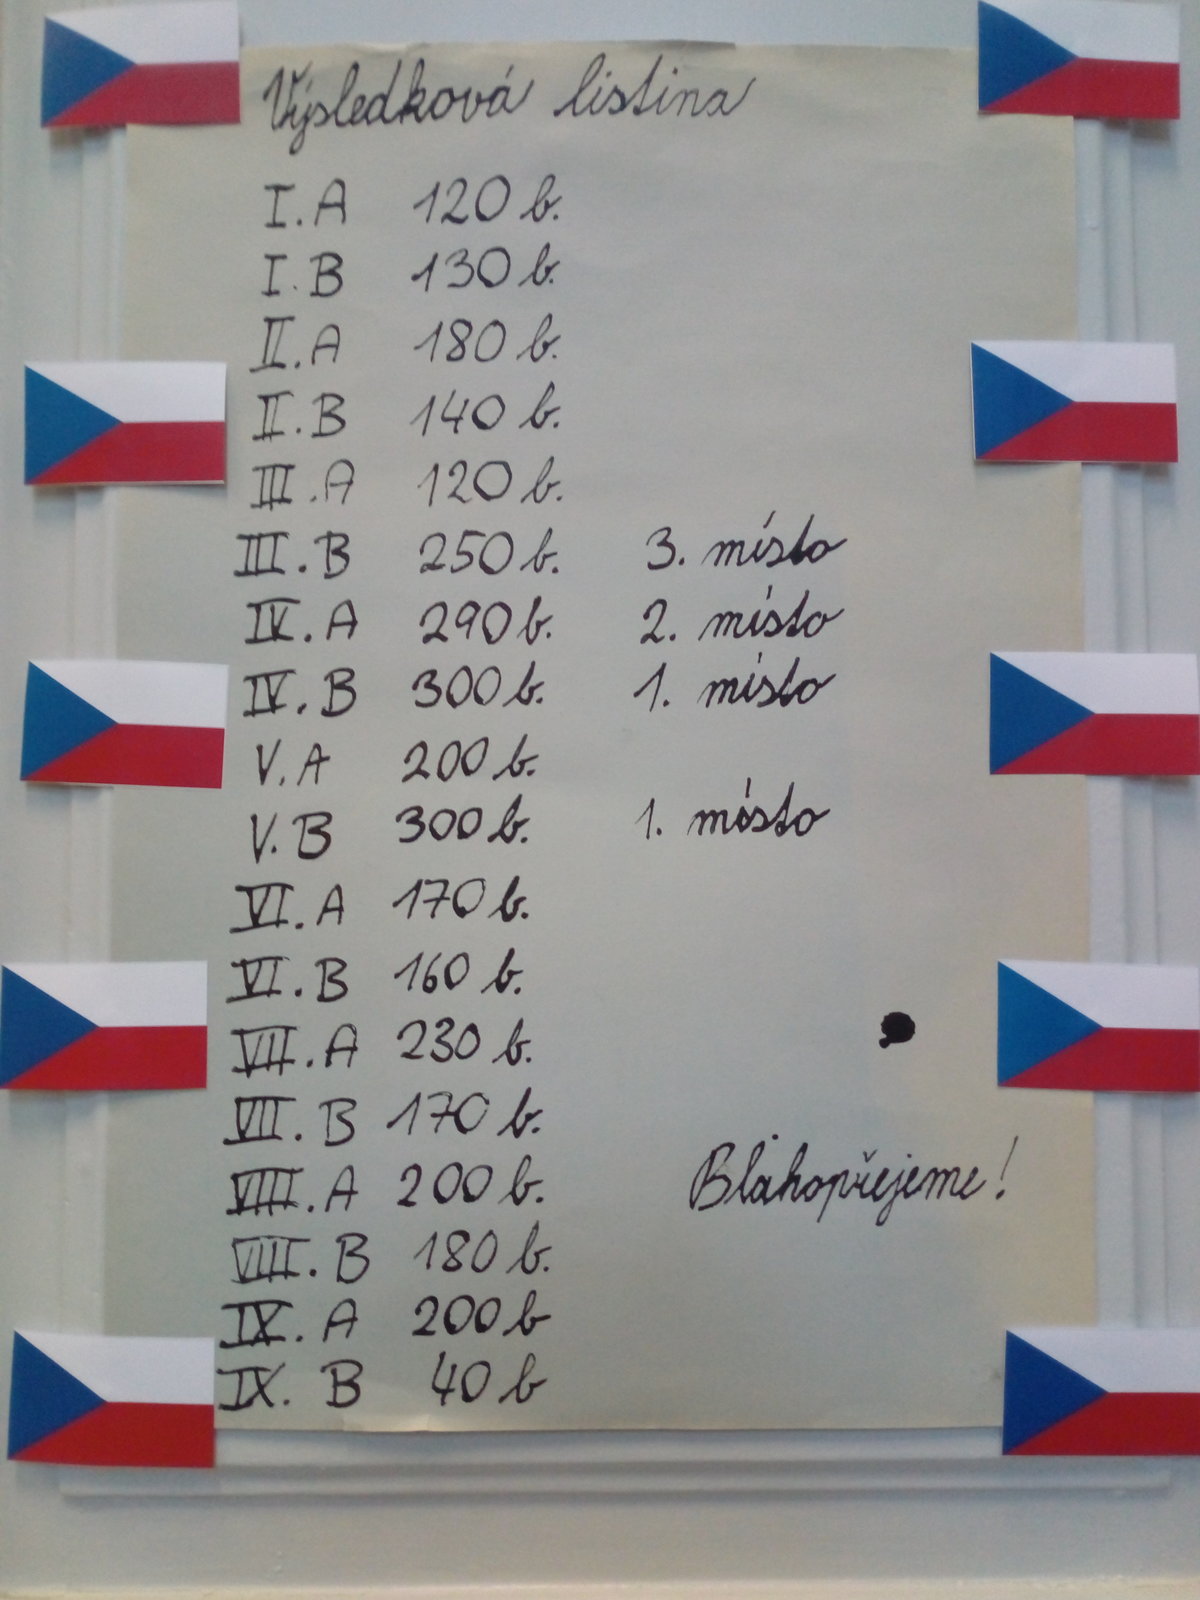 Výsledková listina
I.A 120 b.
I.B 130 b.
II.A 180 b.
II.B 140 b.
III.A 120 b.
III.B 250 b. 3. místo
IV.A 290 b. 2. místo
IV.B 300 b. 1. místo
V.A 200 b.
V.B 300 b. 1. místo
VI.A 170 b.
VI.B 160 b.
VII.A 230 b.
VII.B 170 b.
VIII.A 200 b. Blahopřejeme!
VIII.B 180 b.
IX.A 200 b
IX.B 40 b